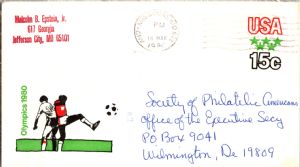 Malcolm B. Epstein, Jr.
617 Georgia
Jefferson City, MO 65101
PM
USA
15c
Olympics 1980
Society of Philatelic Americans
Office of the Executive Secy
PO Box 9041
Wilmington, De 19809